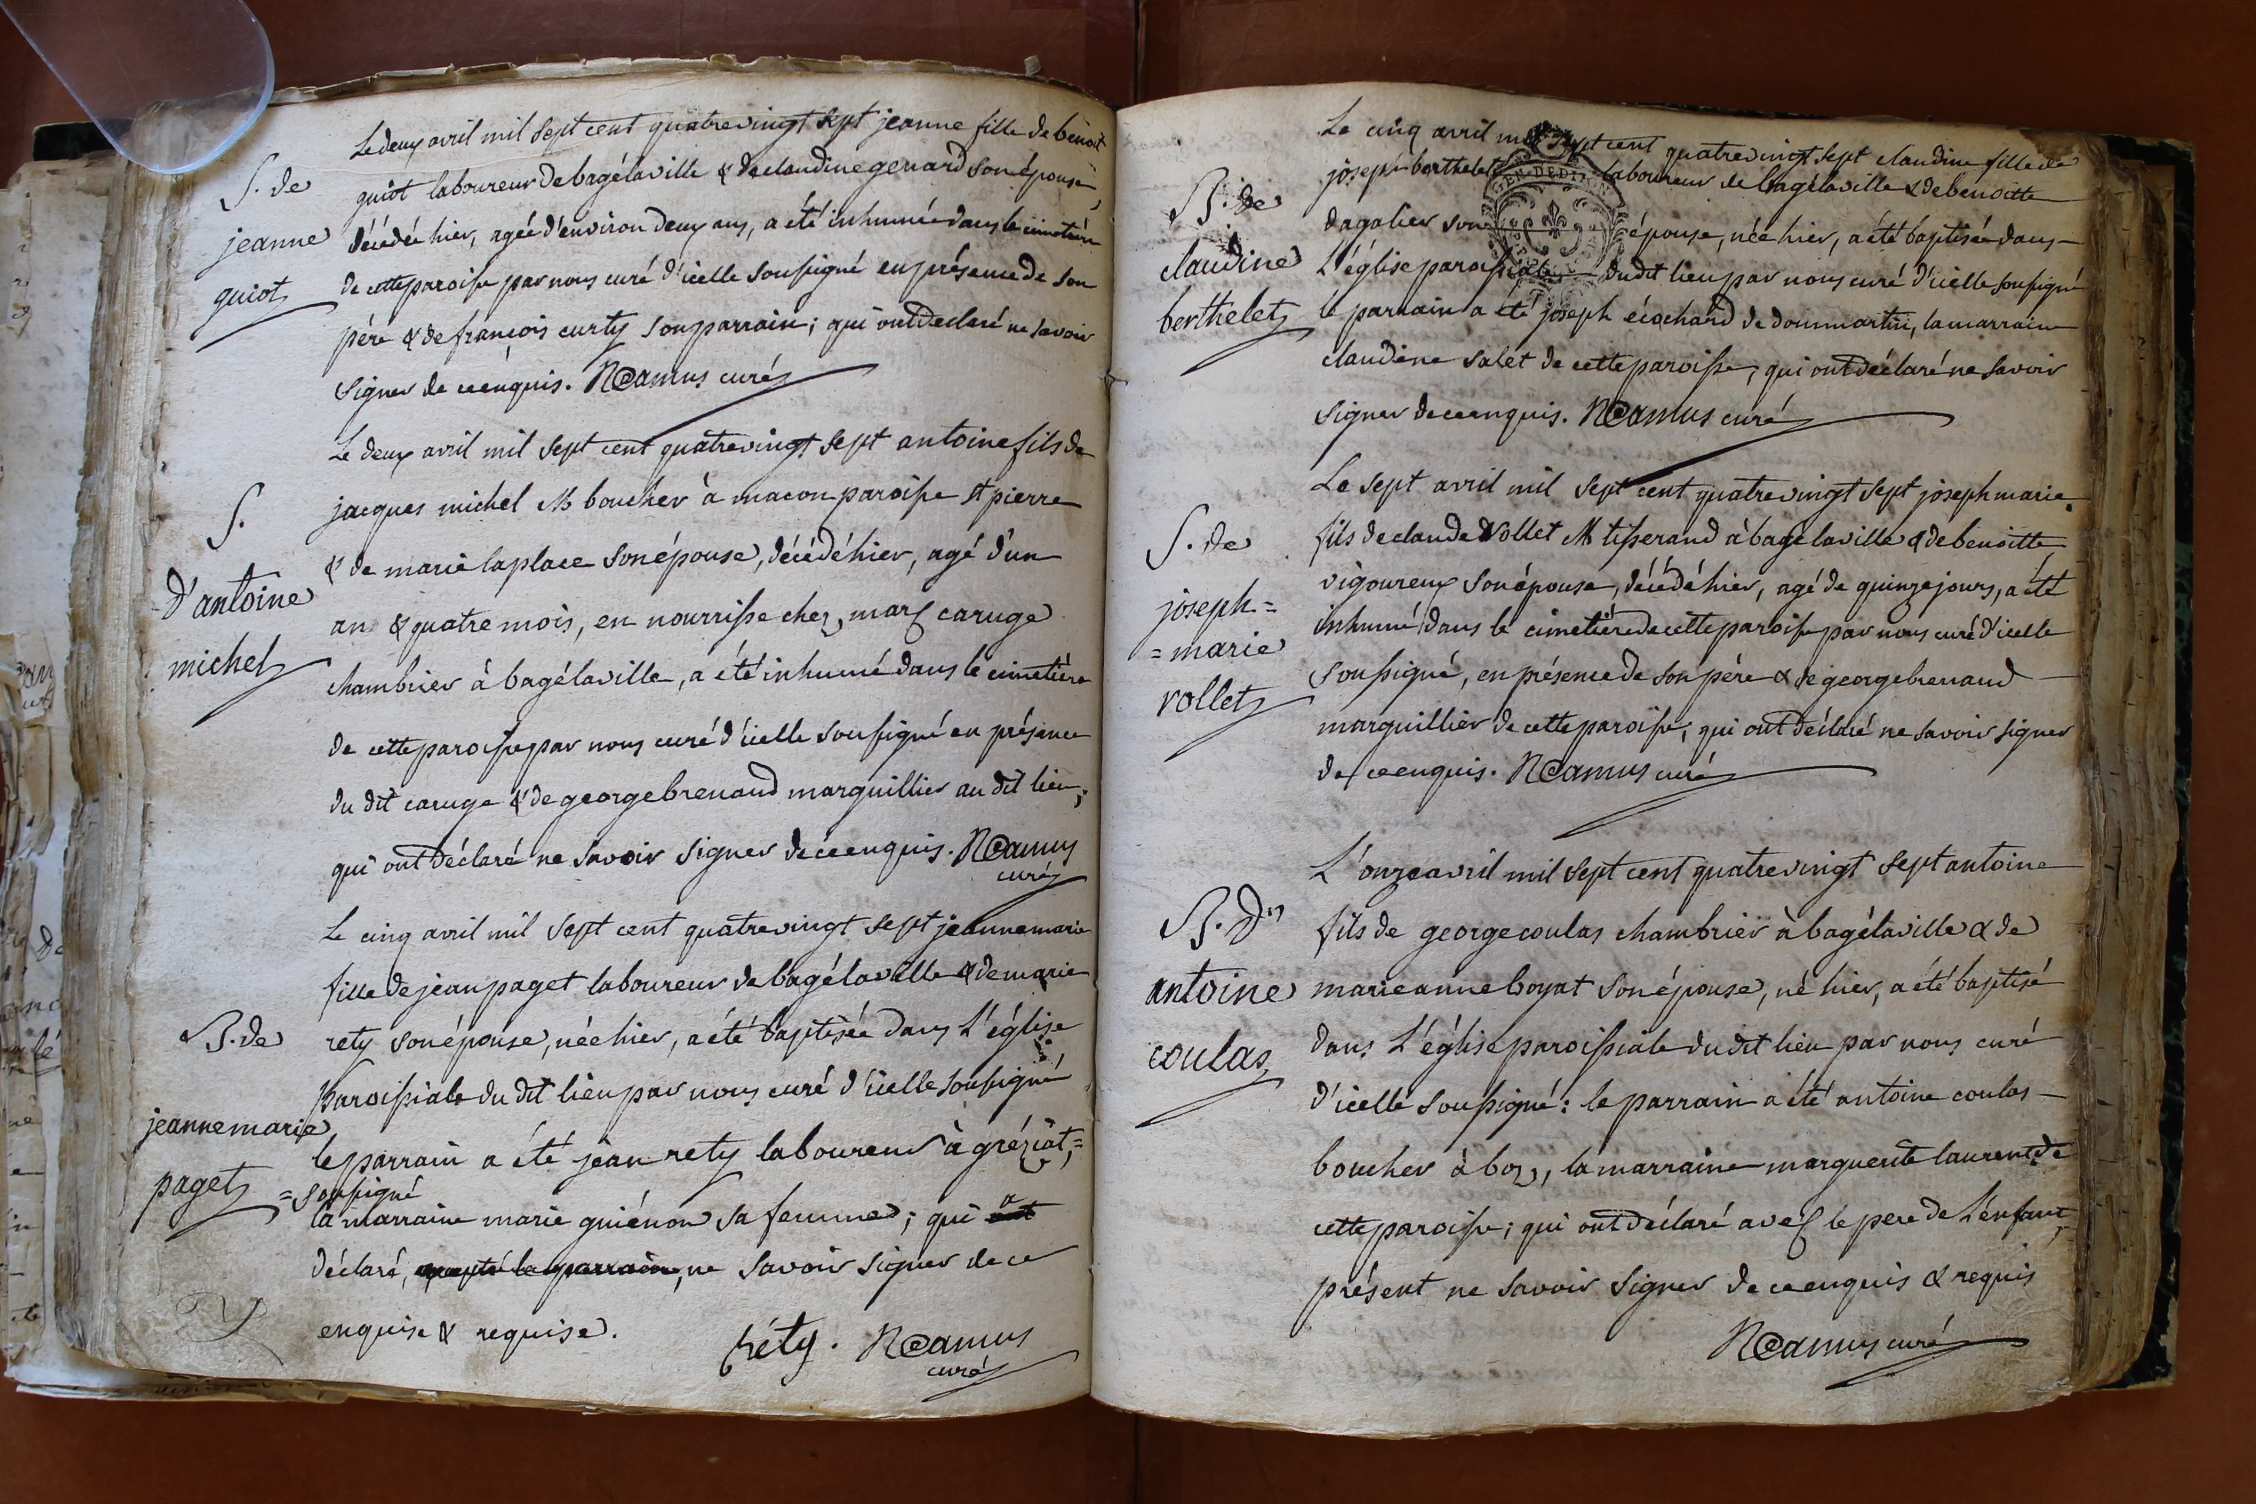 S. de
jeanne
guiot
Le deux avril mil sept cent quatrevingt sept jeanne fille de benoit
guiot laboureur de bagélaville & de claudine genard son épouse,
décédée hier, agée d'environ deux ans, a été inhumée dans le cimetiére
de cette paroisse par nous curé d'icelle soussigné en présence de son
pére & de françois curty son parrain; qui ont declaré ne savoir
signer de ce enquis. NCamus curé
S.
d'antoine
michel
Le deux avril mil sept cent quatrevingt sept antoine fils de
jacques michel M boucher à macon paroisse st pierre
& de marie laplace son épouse, décédé hier, agé d'un
an & quatre mois, en nourrisse chez marc caruge
chambrier à bagélaville, a été inhumé dans le cimetiére
de cette paroisse par nous curé d'icelle soussigné en présence
du dit caruge & de george brenaud marguillier au dit lieu;
qui ont déclaré ne savoir signer de ce enquis. NCamus
curé
B. de
jeanne marie
paget
Le cinq avril mil sept cent quatrevingt sept jeanne marie
fille de jean paget laboureur de bagélaville & de marie
rety son épouse, née hier, a été baptisée dans L'église
paroissiale du dit lieu par nous curé d'icelle soussigné
le parrain a été jean rety laboureur à gréziat,=
= soussigné
la marraine marie guiénon sa femme; qui a ont
déclaré, excepté le parrain, ne savoir signer de ce
enquise & requise.
réty. NCamus
curé
B. de
claudine
berthelet
Le cinq avril mil sept cent quatrevingt sept claudine fille de
joseph berthelet laboureur de bagélaville & de benoitte
dagalier son épouse, née hier, a été baptisée dans
L'église paroissiale du dit lieu par nous curé d'icelle soussigné
le parrain a été joseph écochard de dommartin, la marraine
claudine salet de cette paroisse; qui ont déclaré ne savoir
signer de ce enquis. NCamus curé
S. de
joseph=
=marie
vollet
Le sept avril mil sept cent quatrevingt sept joseph marie
fils de claude vollet M tisserand à bagélaville & de benoitte
vigoureux son épouse, décédé hier, agé de quinze jours, a été
inhumé dans le cimetiére de cette paroisse par nous curé d'icelle
soussigné, en présence de son pére & de george brenaud
marguillier de cette paroisse; qui ont déclaré ne savoir signer
de ce enquis. NCamus curé
B. d'
antoine
coulas
L'onze avril mil sept cent quatrevingt sept antoine
fils de george coulas chambrier à bagélaville & de
marie anne boyat son épouse, né hier, a été baptisé
dans L'église paroissiale du dit lieu par nous curé
d'icelle soussigné: le parrain a été antoine coulas
boucher à boz, la marraine marguerite laurent de
cette paroisse; qui ont déclaré avec le pere de L'enfant
présent ne savoir signer de ce enquis & requis
NCamus curé